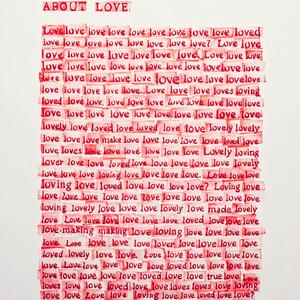 ABOUT LOVE
Love love love love love love love love love loved
love love love love love love love love? Love love
love love love love love love love love love love
love love love love love love love love love love
love love love love love love love love love love
love love love love love love love love loves loving
loved love love love love love love love love love
love love love love love love love love love love
lovely love loved love loved love love lovely lovely
love love love make love love love love loved love
love loves love love love love love Lovely loving
lover love love loved love love love love love love
love love love loving love love love love love love
loving love loved love love love love? Loving love
love love love love love love love love love love
loving lovely love love lovely love love made lovely
lovely Love love loved love love love loved love love
love-making making love loving love love love love
love Love love love love lover love love love love
loved lovely love love. Love love love love love love
love. Love love love loved love love love love love
love love love love loved love love love true love love
loved love love loved love love loves love love loving
love love Love love love loved love love love?